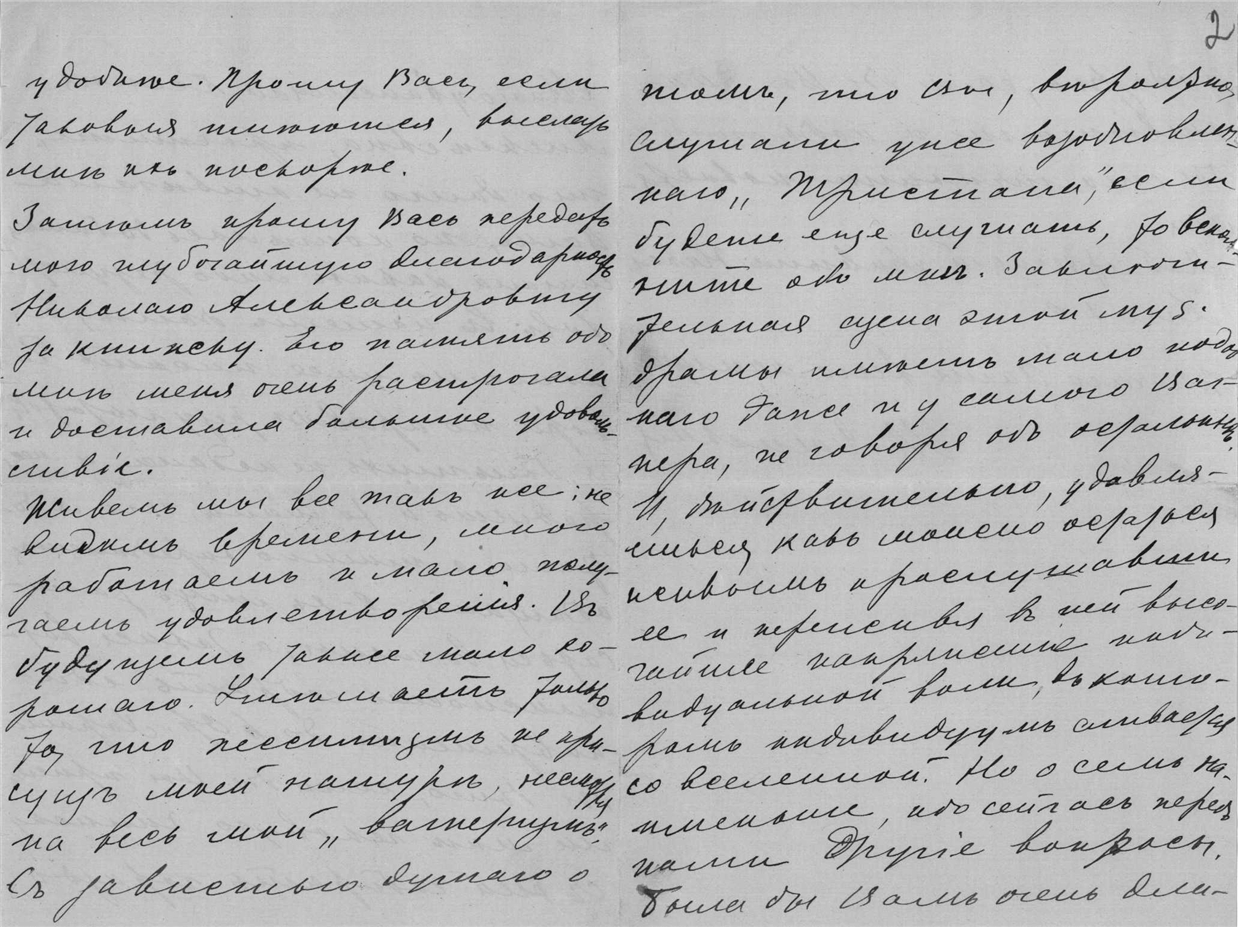 удобнѣе. Прошу Васъ, если
таковыя имѣются, выслать
мнѣ ихъ поскорѣе.
Затѣмъ прошу Васъ передать
мою глубочайшую благодарность
Николаю Александровичу
за книжку. Его память обо
мнѣ меня очень растрогала
и доставила большое удоволь-
ствіе.
Живемъ мы все такъ же; не
видимъ времени, много
работаемъ и мало полу-
чаемъ удовлетворенія. Въ
будущемъ также мало хо-
рошаго. Утѣшаетъ только
то, что пессимизмъ не при-
сущъ моей натурѣ, несмотря
на весь мой „вагнеризмъ“.
Съ завистью думаю о
2
томъ, что Вы, вѣроятно,
слушали уже возобновлен-
наго „Тристана“, если
будете еще слушать, то вспом-
ните обо мнѣ. Заключи-
тельная сцена этой муз.
драмы имѣетъ мало подоб-
наго даже и у самого Ваг-
нера, не говоря объ остальныхъ.
И, дѣйствительно, удивля-
ешься, какъ можно остаться
живымъ прослушавши
ее и переживя въ ней высо-
чайшее напряженіе инди-
видуальной воли, въ кото-
ромъ индивидуумъ сливается
со вселенной. Но о семъ на-
именьше, ибо сейчасъ передъ
нами другіе вопросы.
Была бы Вамъ очень бла-